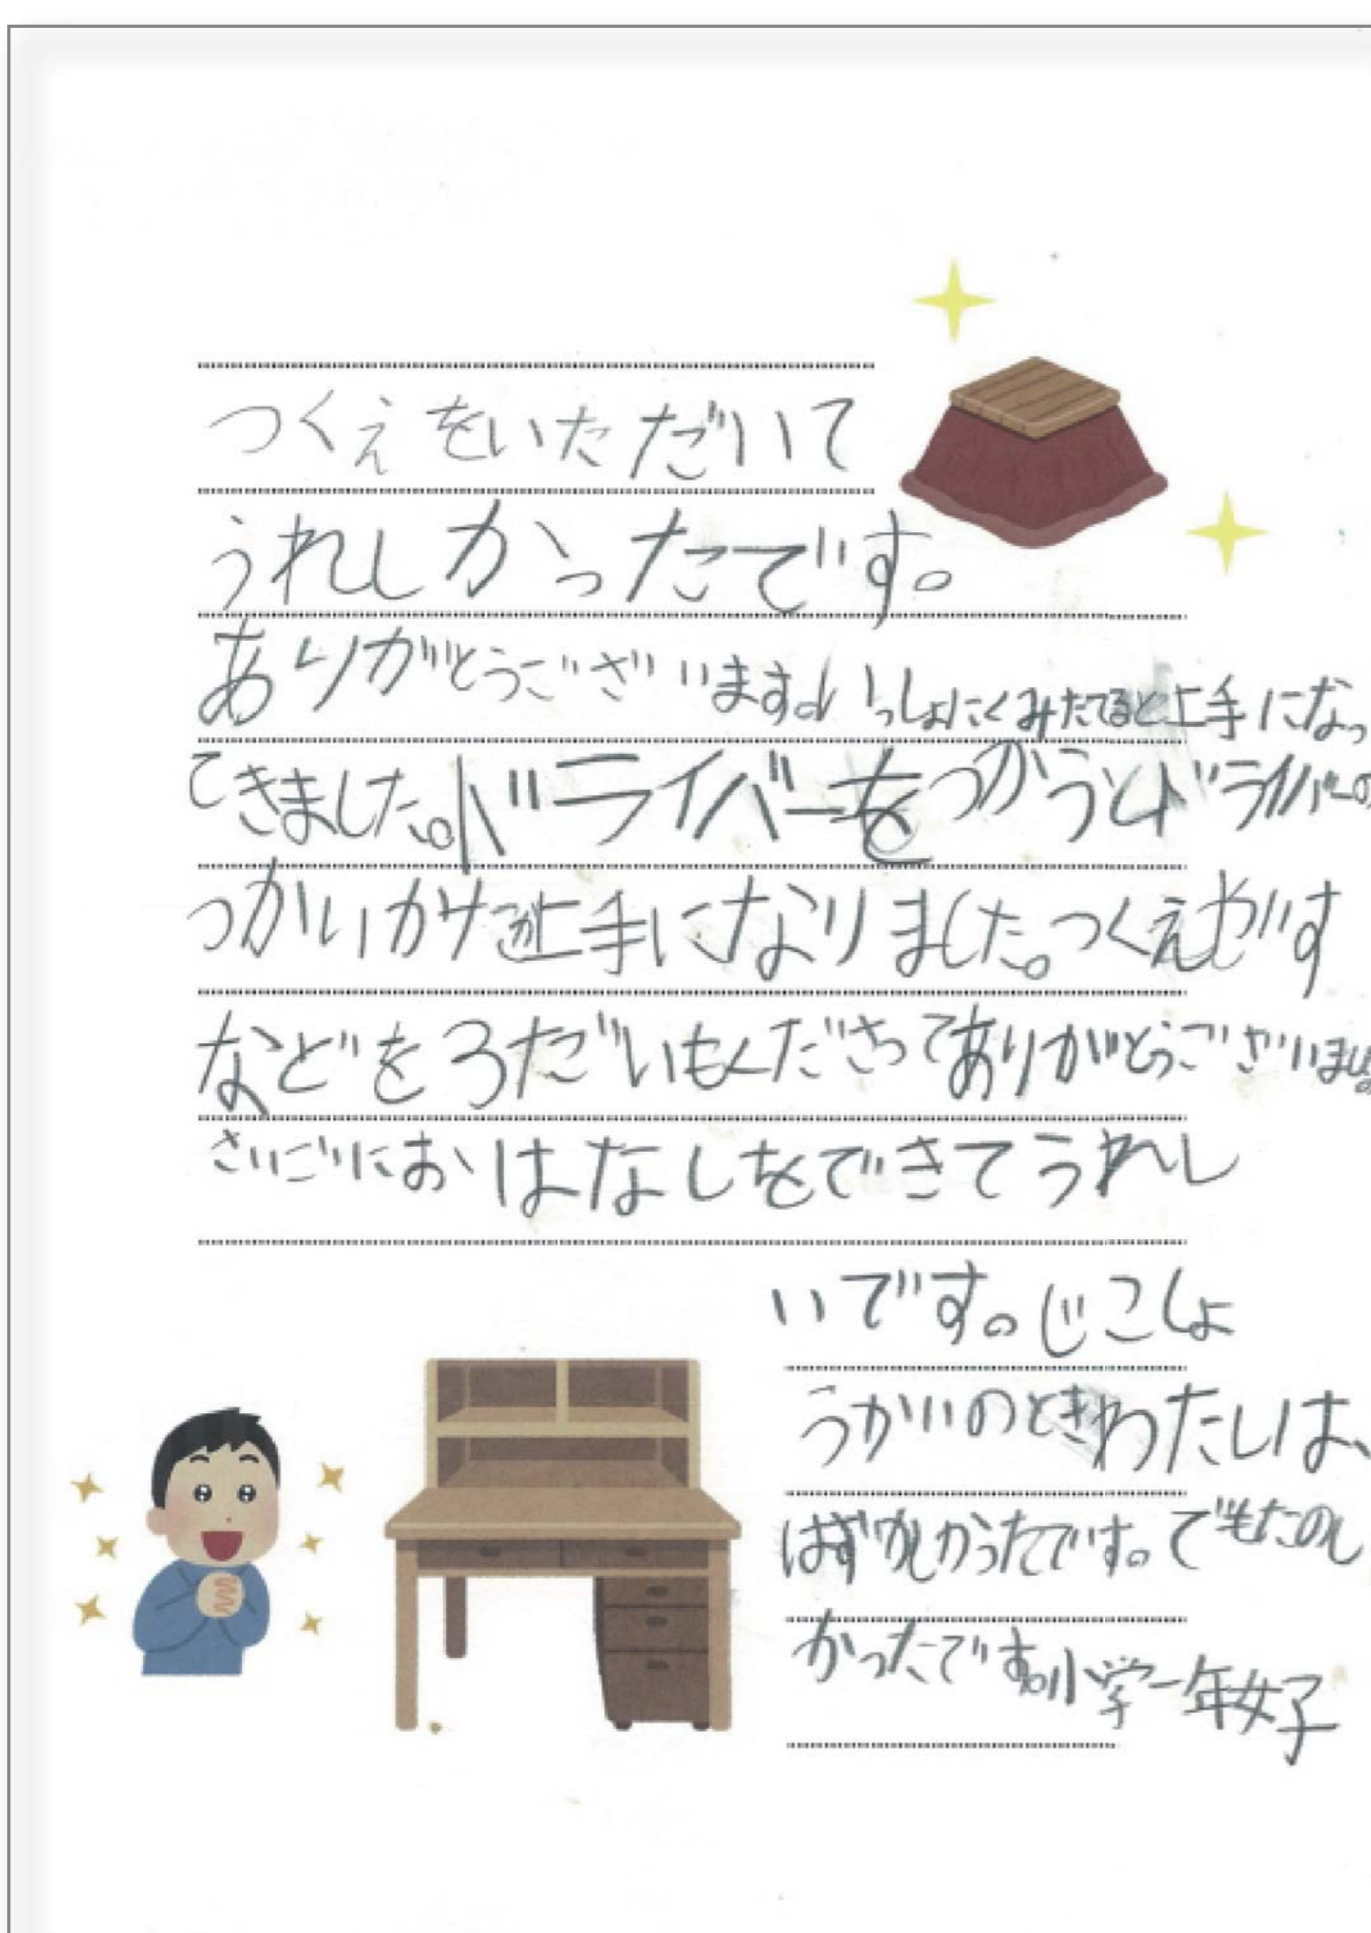 つくえをいただいて
うれしかったです。
ありがとうございます。いっしょにくみたてると上手になっ
てきました。ドライバーをつかうとドライバーの
つかいかたが上手になりました。つくえやいす
などをろだいもくださってありがとうございました。
さいごにおはなしをできてうれし
いです。じこしょ
うかいのときわたしは、
はずかしかったです。でもたのし
かったです。小学一年女子